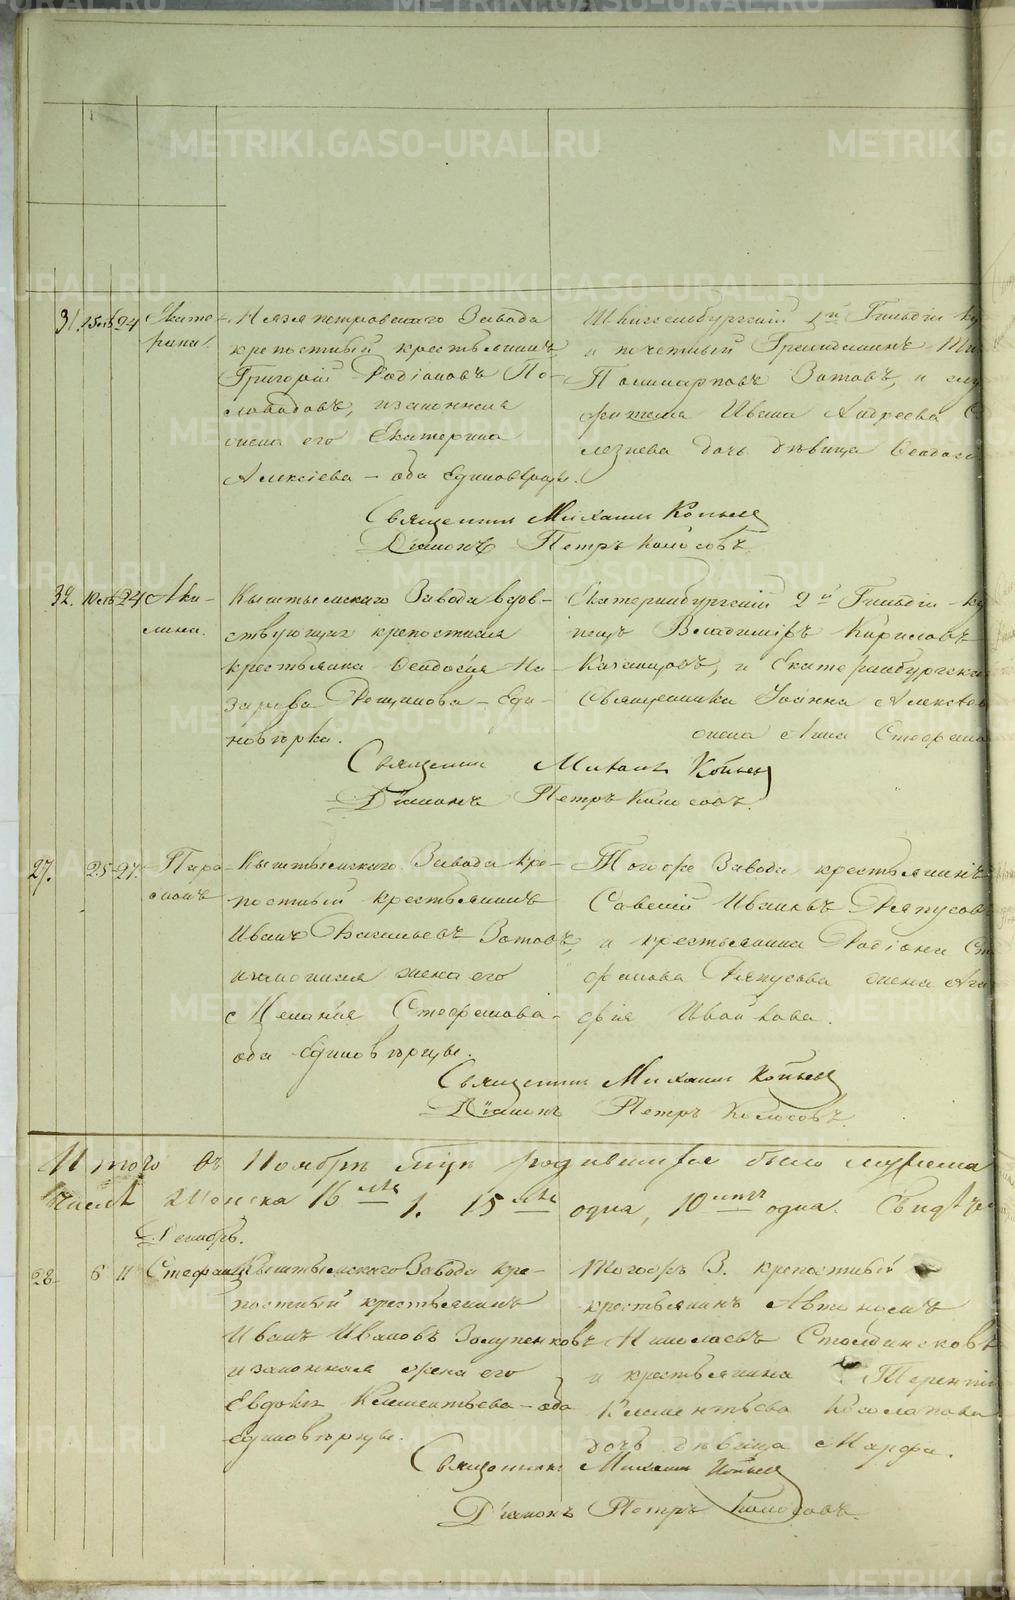 31. 15 ноя 24 Екате-
рина.
Нязепетровскаго Завода
крепостный крестьянинъ
Григорій Родіоновъ По-
ловодовъ, изаконная
жена его Екатерина
Алексіева – оба Единоверцы.
Шлиссельбургскій 1й Гильдіи
и почетный Гражданинъ
Поликарповъ Зотовъ, и слу
жителя Ивана Андреева
лезнева дочь дѣвица Ѳеодосі
Священникъ Михаилъ Копьев
Діаконъ Петръ Колосовъ
32. 10 ноя 24 Аки-
лина.
Кыштымскаго Завода вдов-
ствующая крепостная
крестьянка Ѳеодосія На-
зарова – Еди-
новѣрка.
Екатеринбургскій 2й Гильдіи ку
пецъ Владиміръ Кириловъ
Казанцовъ, и Екатеринбургска
Священника Іоанна Алексѣев
жена Анна Стефана
Священникъ Михаилъ Копьев
Діаконъ Петръ Колосовъ.
27. 25 27. Пара-
монъ
Кыштымскаго Завода кре-
постный крестьянинъ
Иванъ Васильевъ Зотовъ,
изаконная жена его
Меланія Стефанова –
оба Единовѣрцы.
Тогоже Завода крестьянинъ
Савелій Ивановъ Ряпусов
и крестьянина Родіона Сте
фанова Ряпусова жена Ага
фія Иванова.
Священникъ Михаилъ Копьев
Діаконъ Петръ Колосовъ.
Итого въ Ноябрѣ родившихся было мужеска
Женска 16 1. 15 одна, 10 одна.
Декабрь.
28. 6 11 Стефанъ
Кыштымскаго Завода кре-
постный крестьянинъ
Иванъ Ивановъ Голупенковъ
изаконная жена его
Евдокія Клементьева – оба
единовѣрцы.
Тогожъ З. крепостный
крестьянинъ Автономъ
Николаевъ
и крестьянина Терентія
Клементьева Косолапова
дочь дѣвица Марфа.
Священникъ Михаилъ Копьев
Діаконъ Петръ Колосовъ.
METRIKI.GASO-URAL.RU